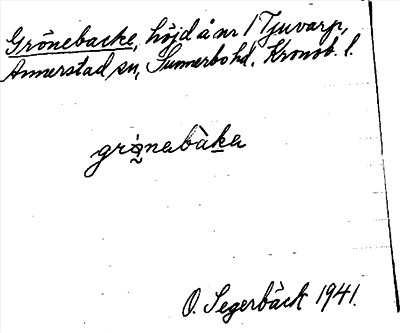 Grönebacke, höjd å nr 1 Tjuvarp,
Annerstad sn, Sunnerbo hd. Kronob. l.
grö̀nabàka
O. Segerbäck 1941.